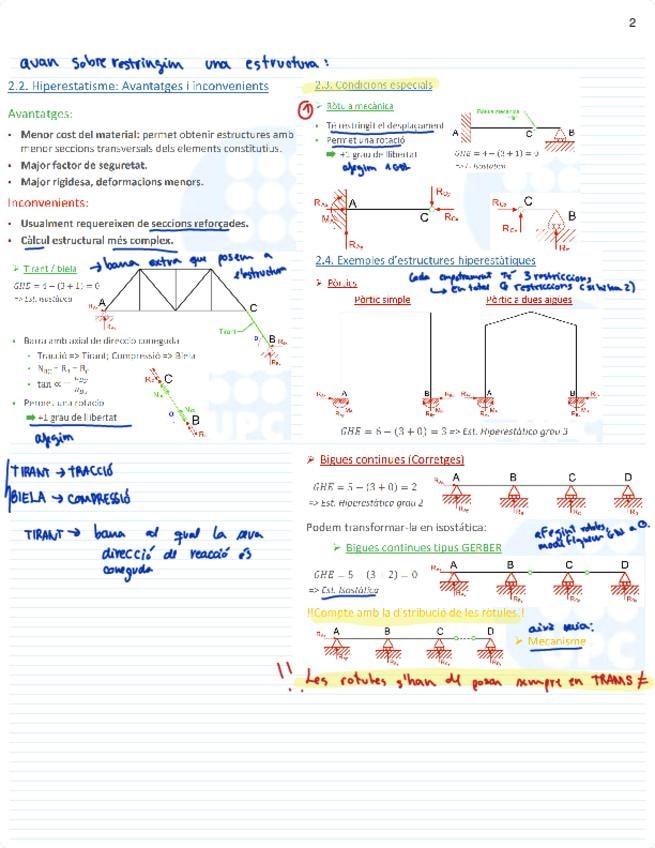 2
quan sobrerestringim una estructura:
2.2. Hiperestatisme: Avantatges i inconvenients
Avantatges:
• Menor cost del material: permet obtenir estructures amb
menor seccions transversals dels elements constitutius.
• Major factor de seguretat.
• Major rigidesa, deformacions menors.
Inconvenients:
• Usualment requereixen de seccions reforçades.
• Càlcul estructural més complex.
➢ Tirant / biela
→ barra extra que posem a
l'estructura
GHE = 4 − (3 + 1) = 0
=> Est. Isostàtica
A
C
Tirant
B
• Barra amb axial de direcció coneguda
• Tracció => Tirant; Compressió => Biela
• tan ∝ =
C
B
• Permet una rotació
➡ +1 grau de llibertat
afegim
TIRANT → TRACCIÓ
BIELA → COMPRESSIÓ
TIRANT → barra al qual la seva
direcció de reacció és
coneguda
2.3. Condicions especials
1
➢ Ròtula mecànica
• Té restringit el desplaçament
• Permet una rotació
➡ +1 grau de llibertat
afegim 1 GdL
Ròtula mecànica
A
C
B
GHE = 4 − (3 + 1) = 0
=> Est. Isostàtica
A
C
C
B
2.4. Exemples d'estructures hiperestàtiques
➢ Pòrtics
Cada empotrament té 3 restriccions,
→ en total 6 restriccions
Pòrtic simple
Pòrtic a dues aigües
A
B
A
B
GHE = 6 − (3 + 0) = 3 => Est. Hiperestàtica grau 3
➢ Bigues continues (Corretges)
GHE = 5 − (3 + 0) = 2
=> Est. Hiperestàtica grau 2
A B C D
Podem transformar-la en isostàtica:
afegint ròtules,
➢ Bigues continues tipus GERBER
GHE = 5 − (3 + 2) = 0
=> Est. Isostàtica
A B C D
!!Compte amb la distribució de les ròtules.!
A B C D
això seria:
➢ Mecanisme
!! Les rotules s'han de posar sempre en TRAMS ≠